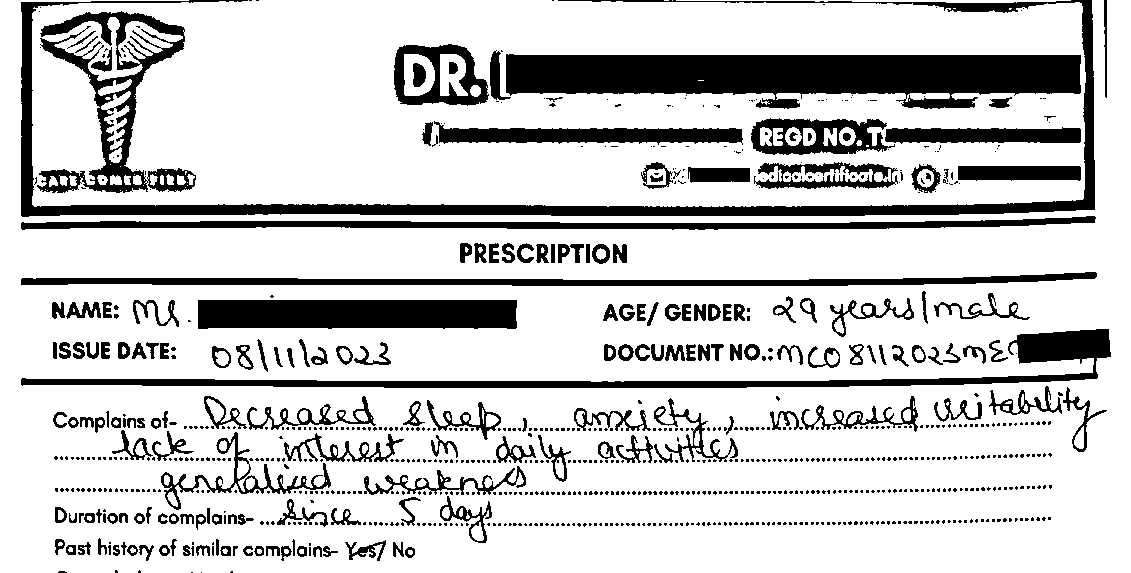 DR.
REGD NO. T
CARE COMES FIRST
edicalcertificate.in
PRESCRIPTION
NAME: Mr.
AGE/ GENDER: 29 years/male
ISSUE DATE: 08/11/2023
DOCUMENT NO.: MC08112023ME
Complains of- Decreased sleep, anxiety, increased irritability
lack of interest in daily activities
generalised weakness
Duration of complains- Since 5 days
Past history of similar complains- Yes/ No